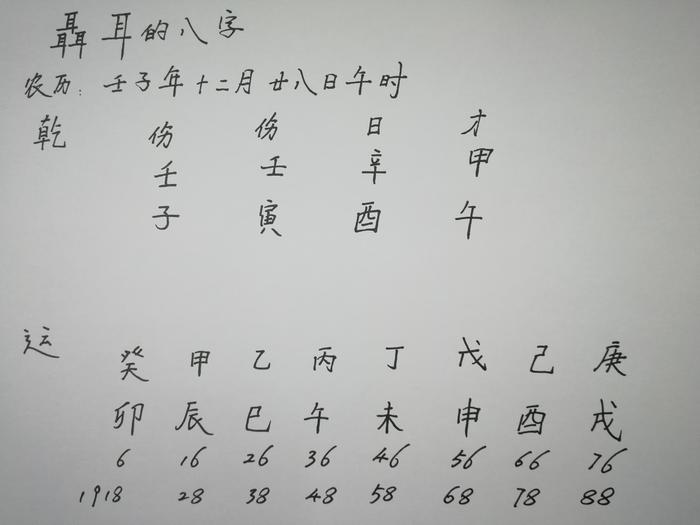 聶耳的八字
农历：壬子年十二月廿八日午时
乾 伤 伤 日 才
壬 壬 辛 甲
子 寅 酉 午
运 癸 甲 乙 丙 丁 戊 己 庚
卯 辰 巳 午 未 申 酉 戌
6 16 26 36 46 56 66 76
1918 28 38 48 58 68 78 88